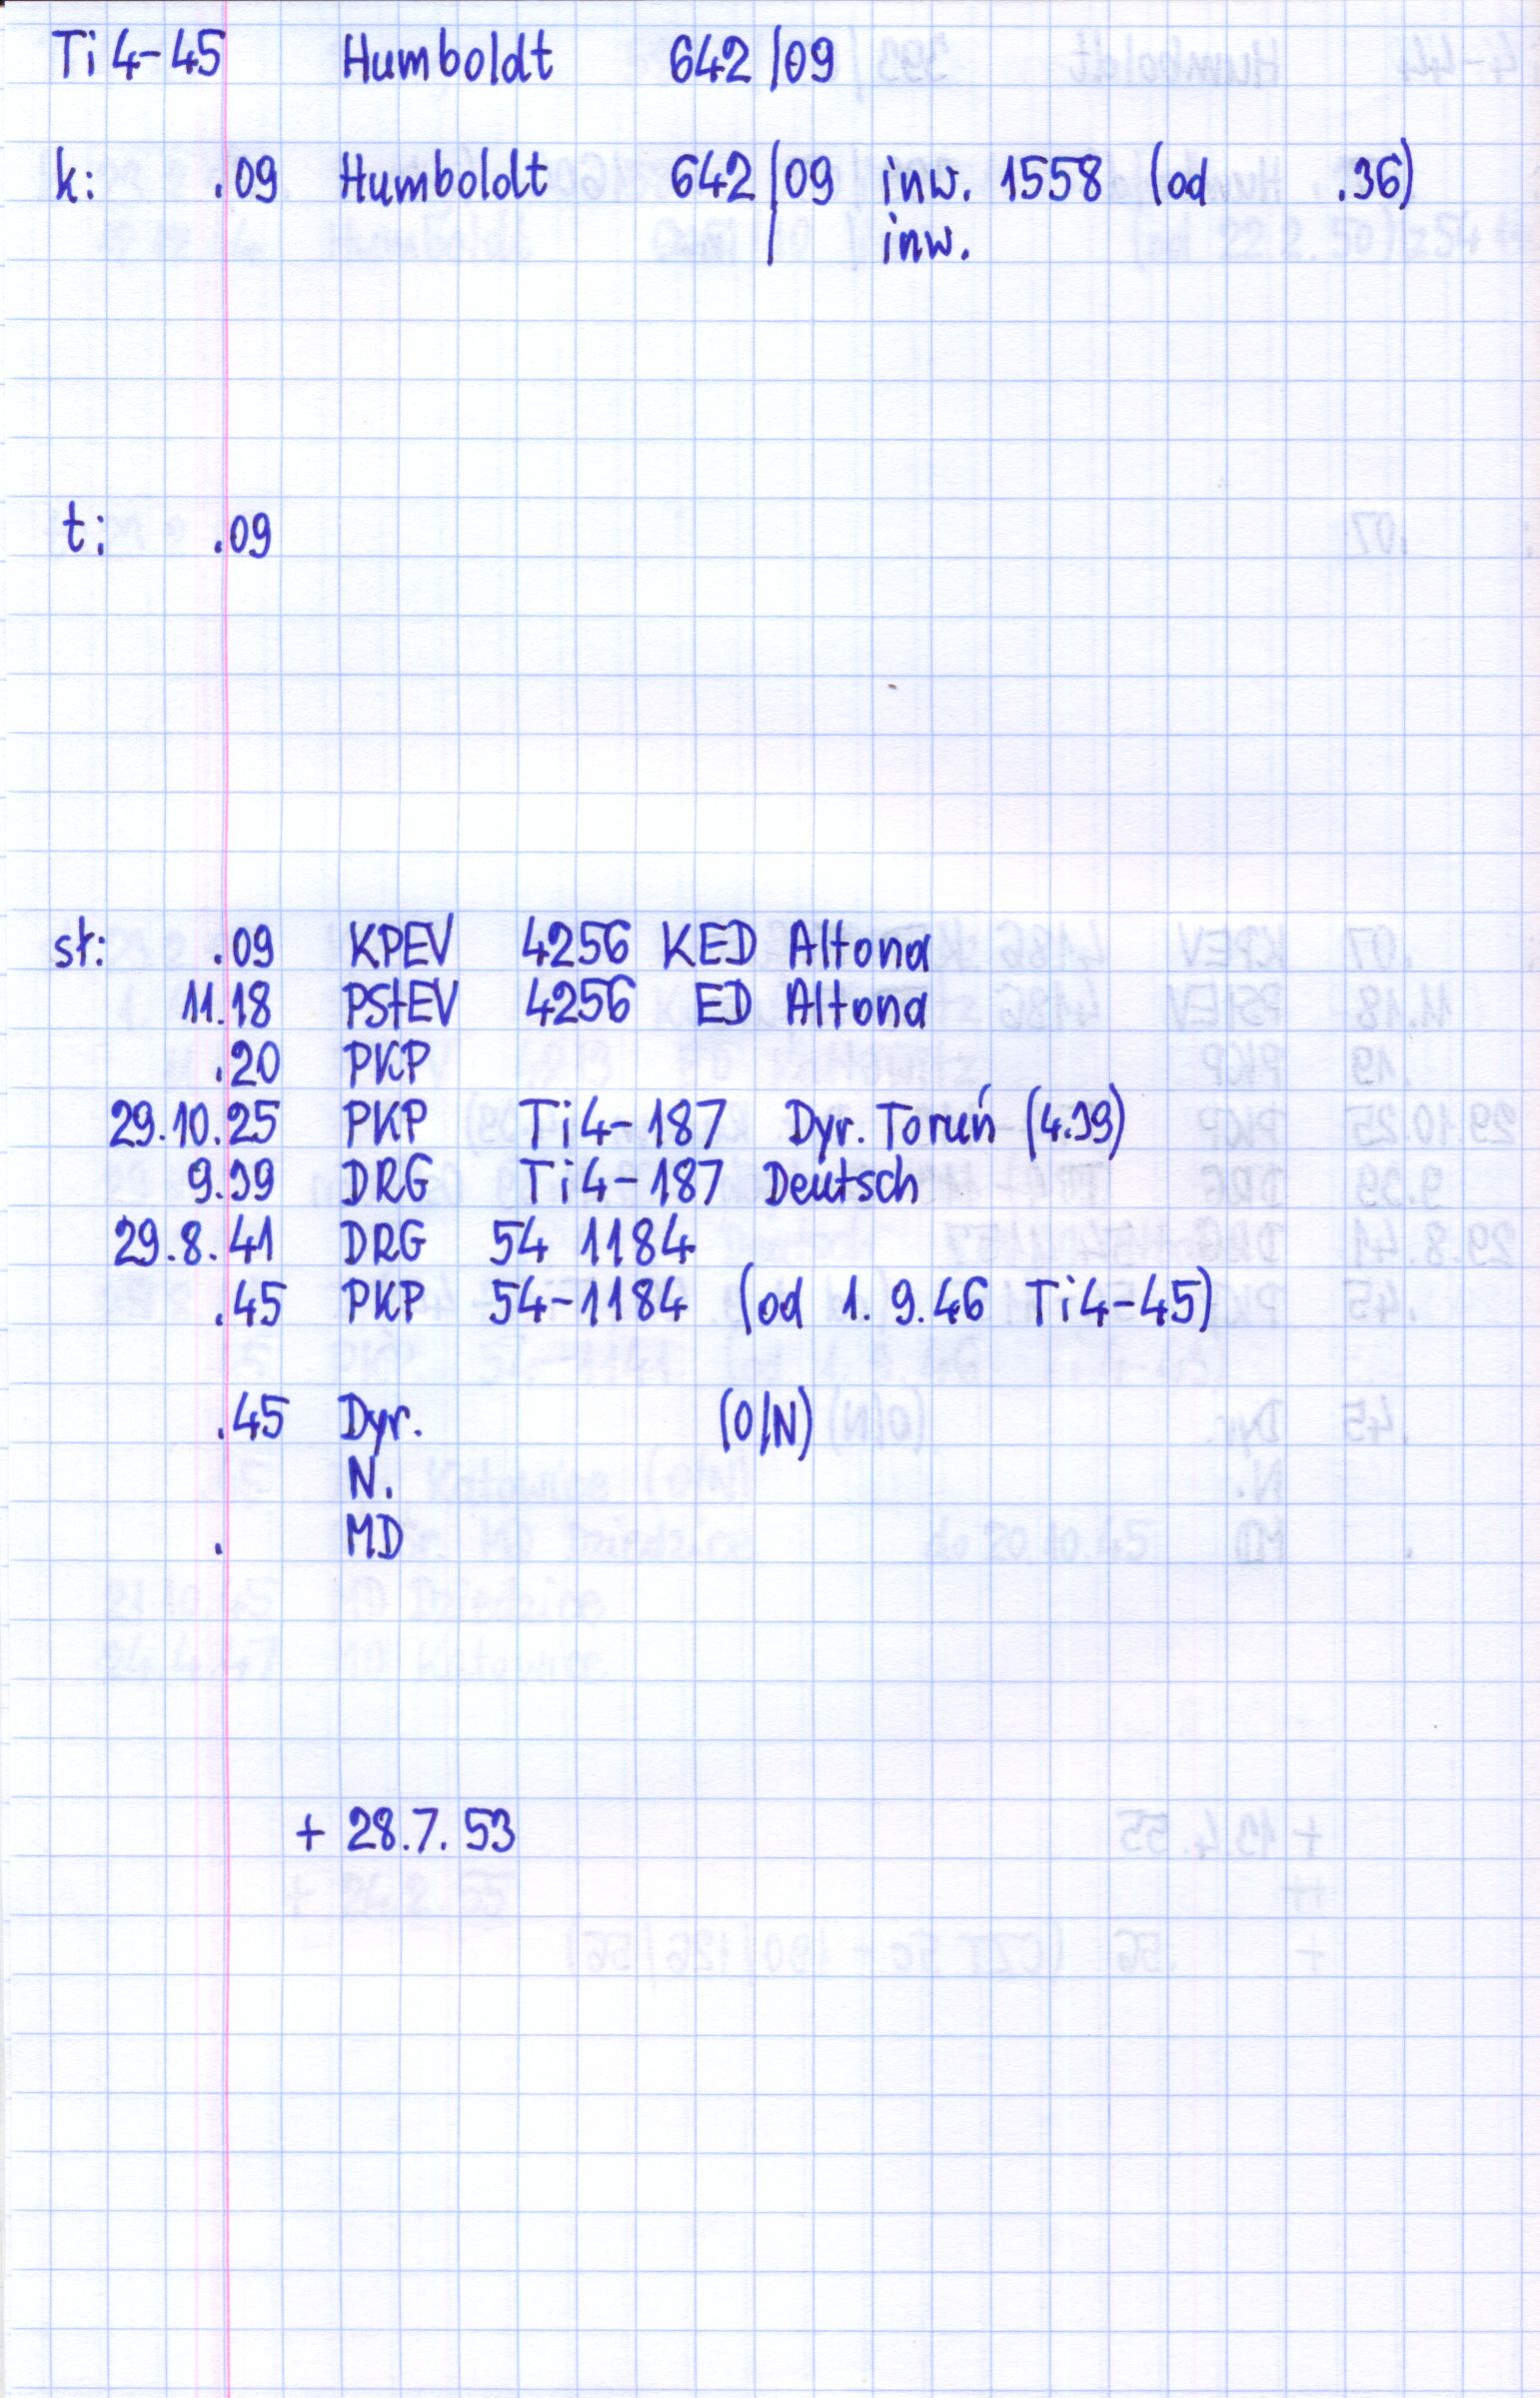 Ti 4-45 Humboldt 642/09
k: .09 Humboldt 642/09 inw. 1558 (od .36)
/ inw.
t: .09
st: .09 KPEV 4256 KED Altona
11.18 PStEV 4256 ED Altona
.20 PKP
29.10.25 PKP Ti4-187 Dyr. Toruń (4.39)
9.39 DRG Ti4-187 Deutsch
29.8.41 DRG 54 1184
.45 PKP 54-1184 (od 1.9.46 Ti4-45)
.45 Dyr. (O/N)
N.
. MD
+ 28.7.53